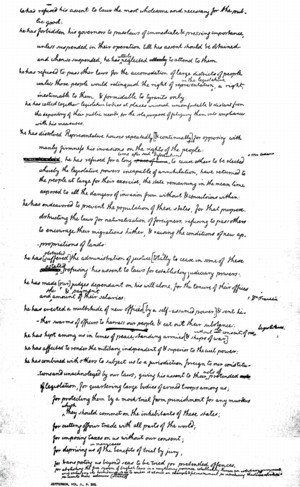 he has refused his assent to laws the most wholesome and necessary for the pub-
lic good:
he has forbidden his governors to pass laws of immediate & pressing importance,
unless suspended in their operation till his assent should be obtained
and when so suspended, he has neglected utterly to attend to them.
he has refused to pass other laws for the accomodation of large districts of people
unless those people would relinquish the right of representation, a right
in the legislature
inestimable to them, & formidable to tyrants only:
he has called together legislative bodies at places unusual, uncomfortable & distant from
the depository of their public records, for the sole purpose of fatiguing them into compliance
with his measures:
he has dissolved Representative houses repeatedly & continually, for opposing with
manly firmness his invasions on the rights of the people:
he has refused for a long to cause others to be elected
whereby the legislative powers, incapable of annihilation, have returned to
the people at large for their exercise, the state remaining in the mean time
exposed to all the dangers of invasion from without & convulsions within:
he has endeavored to prevent the population of these states; for that purpose
obstructing the laws for naturalization of foreigners; refusing to pass others
to encourage their migrations hither; & raising the conditions of new ap-
propriations of lands:
he has suffered the administration of justice totally to cease in some of these
refusing his assent to laws for establishing judiciary powers:
he has made our judges dependant on his will alone, for the tenure of their offices
& payment
and amount of their salaries:
Dr. Franklin
he has erected a multitude of new offices by a self-assumed power, & sent hi-
ther swarms of officers to harrass our people & eat out their substance:
he has kept among us in times of peace standing armies & ships of war
he has affected to render the military, independant of & superior to the civil power:
he has combined with others to subject us to a jurisdiction foreign to our constitu-
tions and unacknoleged by our laws; giving his assent to their pretended acts of
legislation, for quartering large bodies of armed troops among us;
for protecting them by a mock-trial from punishment for any murders
which
they should commit on the inhabitants of these states;
for cutting off our trade with all parts of the world;
for imposing taxes on us without our consent;
for depriving us of the benefits of trial by jury;
for transporting us beyond seas to be tried for pretended offences;
JEFFERSON, VOL. I.